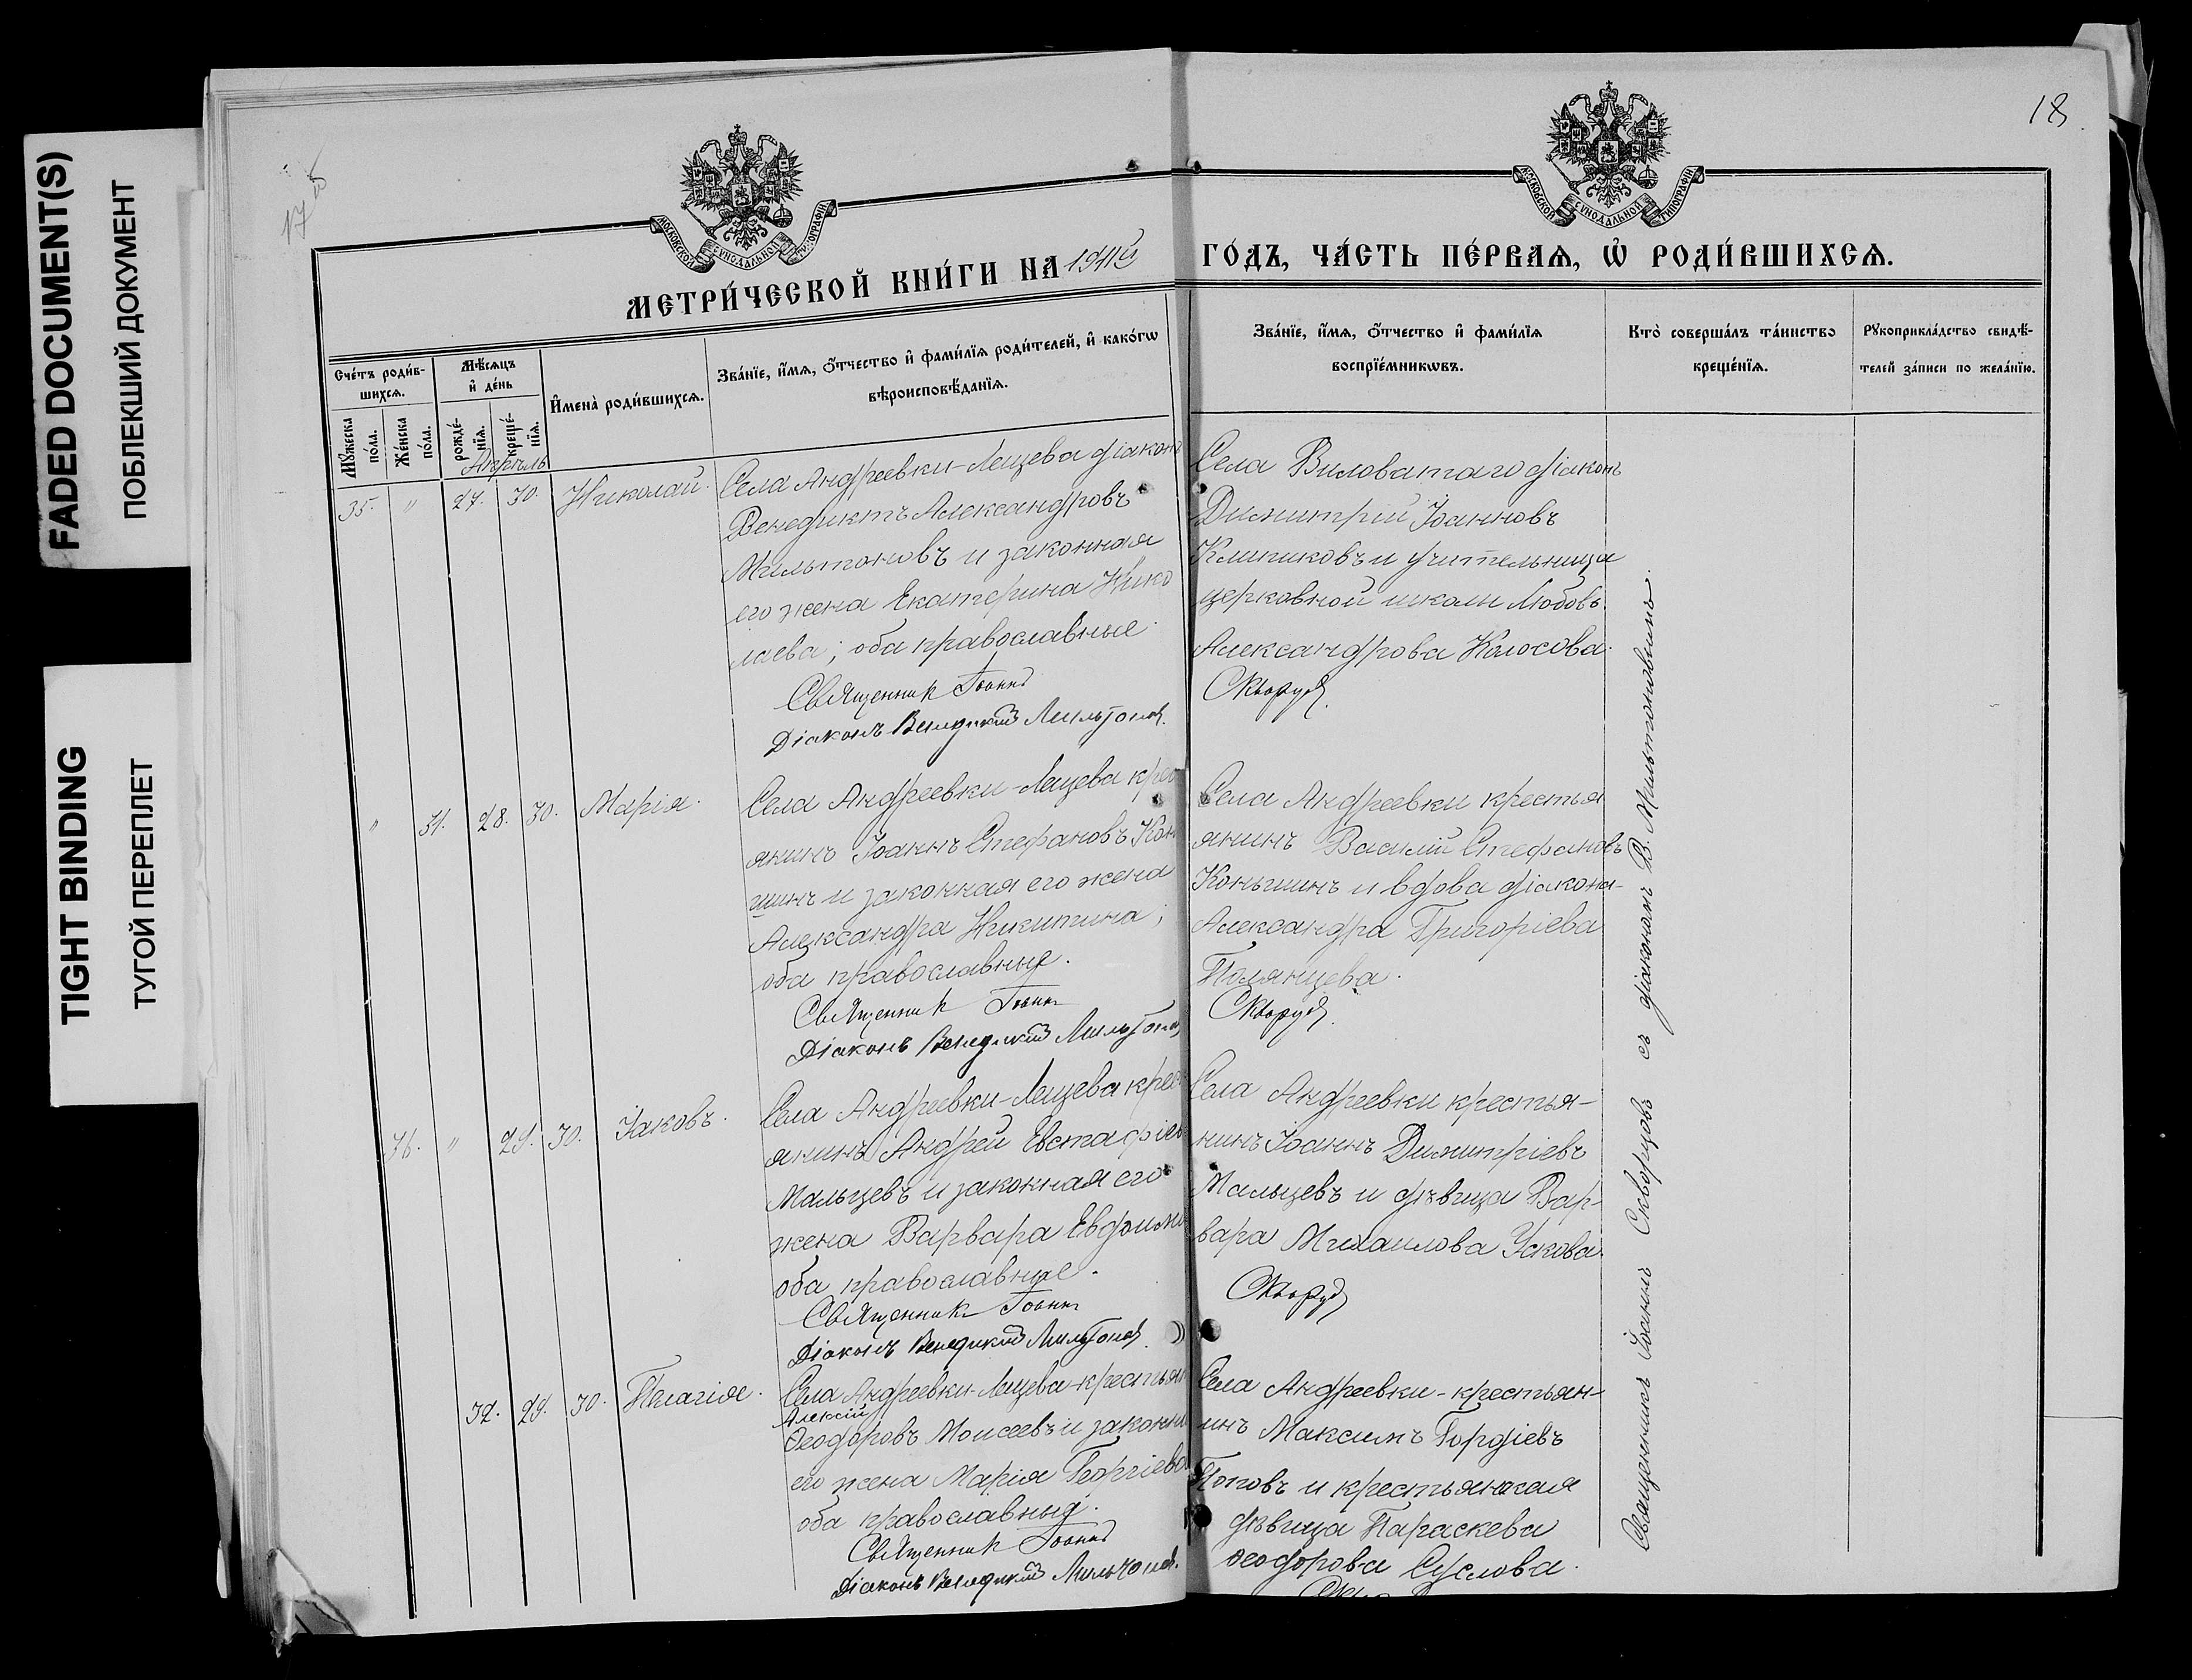 FADED DOCUMENT(S)
ПОБЛЕКШИЙ ДОКУМЕНТ
TIGHT BINDING
ТУГОЙ ПЕРЕПЛЕТ
17
18
МОСКОВСКОЙ СУНОДАЛЬНОЙ ТИПОГРАФІИ
МОСКОВСКОЙ СУНОДАЛЬНОЙ ТИПОГРАФІИ
МЕТРИ́ЧЕСКОЙ КНИ́ГИ НА
ГО́ДЪ, ЧА́СТЬ ПЕ́РВАѦ, Ѽ РОДИ́ВШИХСѦ.
Сче́тъ роди́в-
шихсѧ.
Мꙋ́жеска по́ла.
Же́нска по́ла.
Мѣ́сѧцъ и҆ де́нь
рожде́-нїѧ.
креще́-нїѧ.
И҆мена̀ роди́вшихсѧ.
Зва́нїе, и҆́мѧ, о҆́тчество и҆ фами́лїѧ роди́телей, и҆ како́гѡ
вѣроисповѣ́данїѧ.
Зва́нїе, и҆́мѧ, о҆́тчество и҆ фами́лїѧ
воспрїе́мникѡвъ.
Кто̀ соверша́лъ та́инство
креще́нїѧ.
Рꙋкоприкла́дство свидѣ́-
телей за́писи по жела́нїю.
Апрѣль
35. " 27. 30. Николай.
Села Андреевки-Лещева діаконъ
Венедиктъ Александровъ
Мильтоновъ и законная
его жена Екатерина Нико
лаева; оба православные.
Священник Іоанн
Діаконъ Венедиктъ Мильтонов.
Села Виловатаго діаконъ
Димитрій Іоанновъ
Клипиковъ и учительница
церковной школы Любовь
Александрова Колосова.
Скворцов.
" 31. 28. 30. Марія.
Села Андреевки-Лещева крес
янинъ Іоаннъ Стефановъ Конь
шинъ и законная его жена
Александра Никитина;
оба православные.
Священник Іоанн
Діаконъ Венедиктъ Мильтонов
Села Андреевки крестья
янинъ Василій Стефановъ
Коньшинъ и вдова діакона
Александра Григоріева
Полянцева.
Скворцов.
36. " 29. 30. Іаковъ.
Села Андреевки-Лещева крес
янинъ Андрей Евстафіев
Мальцевъ и законная его
жена Варвара Евфими
оба православные.
Священник Іоанн
Діаконъ Венедиктъ Мильтонов
Села Андреевки крестья-
нинъ Іоаннъ Димитріевъ
Мальцевъ и дѣвица Вар-
вара Михаилова Ускова.
Скворцов
32. 29. 30. Пелагія.
Села Андреевки-Лещева-крестьян
Алексій
Ѳеодоровъ Моисеевъ и законн
его жена Марія Георгіева
оба православные.
Священник Іоанн
Діаконъ Венедиктъ Мильтонов.
Села Андреевки-крестьян-
инъ Максимъ Гордіевъ
Поповъ и крестьянская
дѣвица Параскева
Ѳеодорова Суслова.
Священникъ Іоаннъ Скворцовъ съ діакономъ В. Мильтоновымъ.